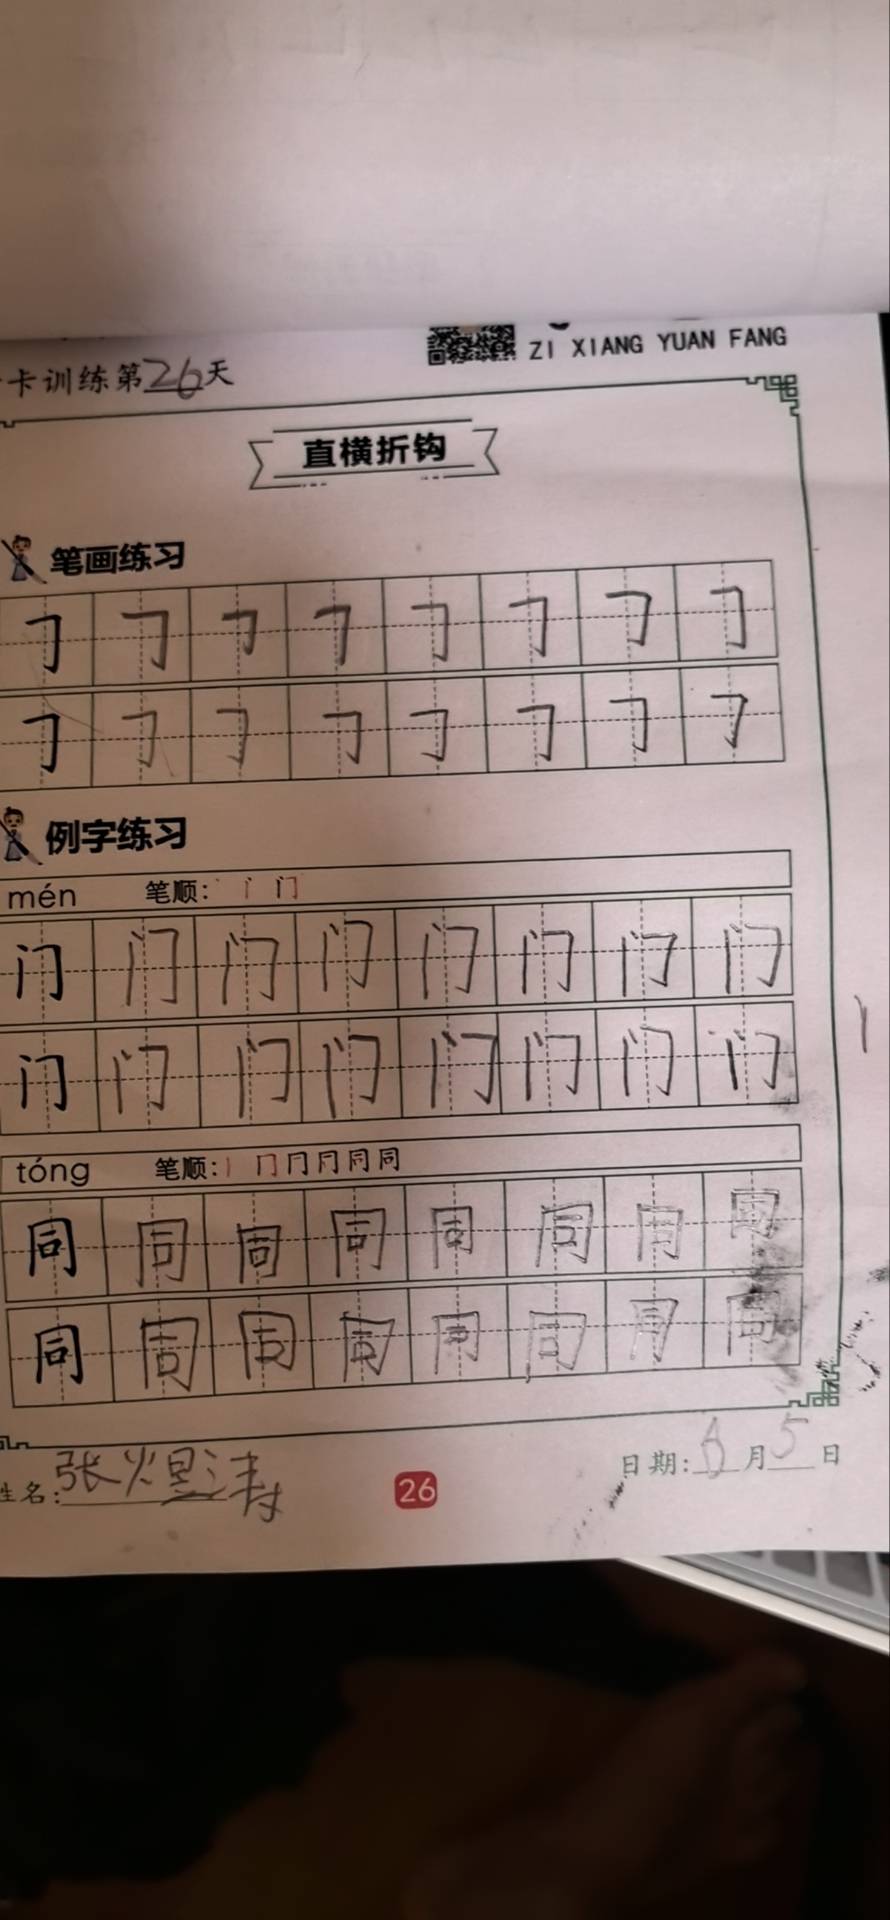 ZI XIANG YUAN FANG
卡训练第26天
直横折钩
笔画练习
例字练习
mén 笔顺:
门 门 门 门 门 门 门 门
门 门 门 门 门 门 门 门
tóng 笔顺: 丨 冂 冂 同 同
同 同 同 同 同 同 同 同
同 同 同 同 同 同 同 同
姓名: 张
26
日期: 月5日